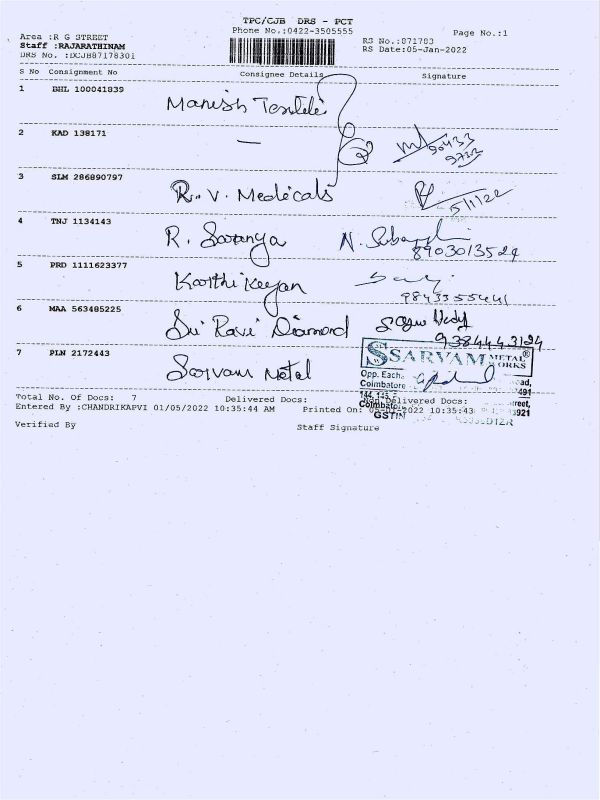 TPC/CJB DRS - PCT
Phone No.:0422-3505555
Page No.:1
Area :R G STREET
Staff :RAJARATHINAM
DRS No. :DCJB87178301
RS No.:871783
RS Date:05-Jan-2022
S No Consignment No Consignee Details Signature
1 BHL 100041839 Manish Textile
2 KAD 138171 — 90433
3 SLM 286890797 R. V. Medicals 5/1/22
4 TNJ 1134143 R. Saranya N. 8903013524
5 PRD 1111623377 Karthikeyan
6 MAA 563485225 Sri Ravi Diamond 9384443124
7 PLN 2172443 Sarvam Metal
SARVAM METAL WORKS ®
Opp. Exch
Coimbatore
Total No. Of Docs: 7 Delivered Docs: Non Delivered Docs:
Entered By :CHANDRIKAPVI 01/05/2022 10:35:44 AM Printed On: 05-01-2022 10:35:43
GSTIN
Verified By Staff Signature